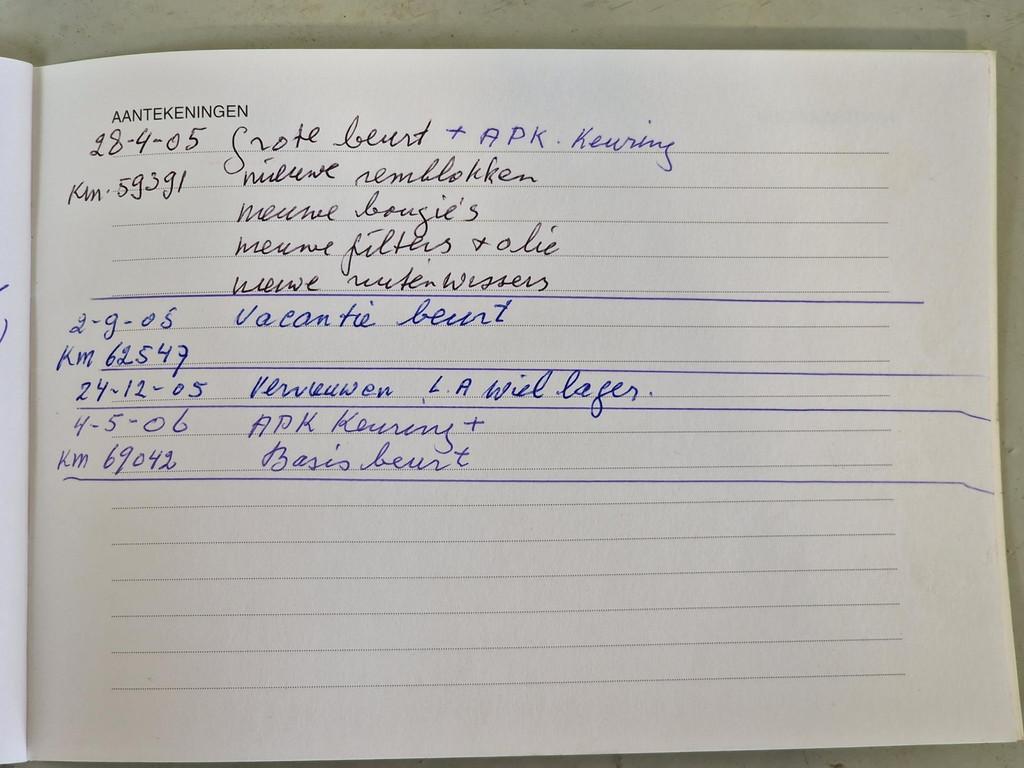 AANTEKENINGEN
28-4-05 Grote beurt + APK. Keuring
Km. 59391 nieuwe remblokken
nieuwe bougie's
nieuwe filters + olie
nieuwe ruitenwissers
2-9-05 Vacantie beurt
Km 62547
24-12-05 Vernieuwen L.A wiel lager.
4-5-06 APK Keuring +
Km 69042 Basis beurt